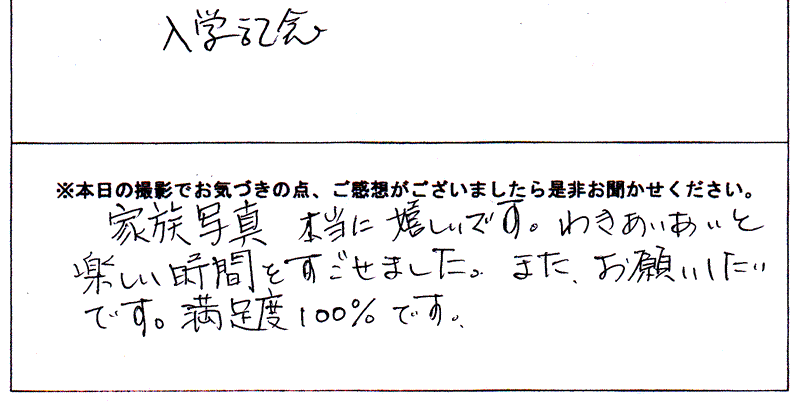 入学記念
※本日の撮影でお気づきの点、ご感想がございましたら是非お聞かせください。
家族写真 本当に嬉しいです。わきあいあいと
楽しい時間をすごせました。また、お願いしたい
です。満足度100%です。